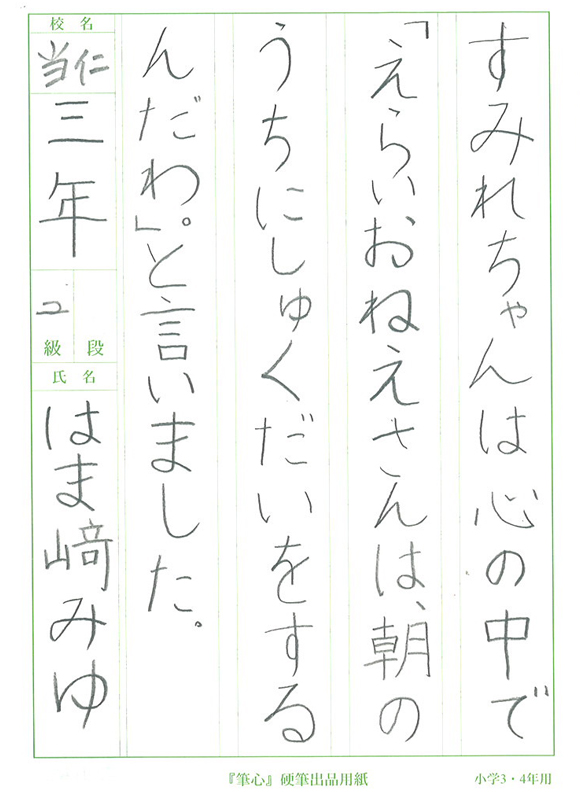 すみれちゃんは心の中で
「えらいおねえさんは、朝の
うちにしゅくだいをする
んだわ」。と言いました。
校名
当仁
三年
2
級 段
氏名
はま﨑みゆ
『筆心』硬筆出品用紙
小学3・4年用